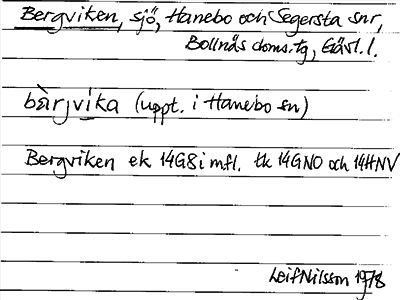 Bergviken, sjö, Hanebo och Segersta snr,
Bollnäs doms.tg, Gävl. l.
bàrjvika (uppt. i Hanebo sn)
Bergviken ek 14G8i mfl. tk 14GNO och 14HNV
Leif Nilsson 1978